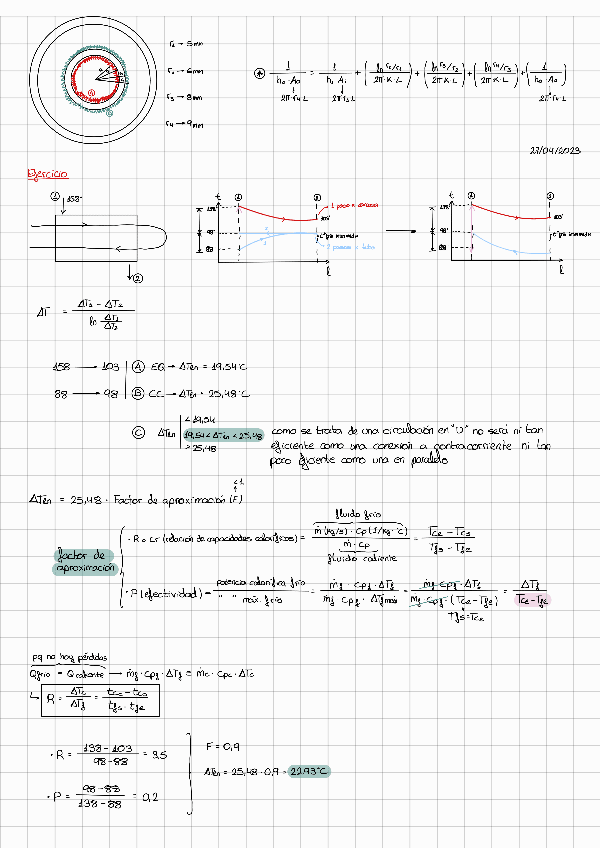 r₁ → 5mm
r₂ → 6mm
r₃ → 8mm
r₄ → 9mm
* 1/(h₀·A₀) = 1/(hᵢ·Aᵢ) + (ln r₂/r₁ / 2π·K·L) + (ln r₃/r₂ / 2π·K·L) + (ln r₄/r₃ / 2π·K·L) + (1/(h₀·A₀))
2π·r₄·L 2π·r₁·L 2π·r₄·L
27/04/2023
Ejercicio
① 158°
②
t ① ②
1 paso x carcasa
103°
98°
88
2 pasos x tubo
L
t ① ②
103°
98°
88
L
ΔT = (ΔT₁ - ΔT₂) / (ln ΔT₁/ΔT₂)
158 → 103 Ⓐ EQ → ΔTln = 19,54°C
88 → 98 Ⓑ CC → ΔTln = 25,48°C
Ⓒ ΔTln
< 19,54
19,54 < ΔTln < 25,48
> 25,48
como se trata de una circulación en "U" no será ni tan
eficiente como una conexión a contracorriente ni tan
poco eficiente como una en paralelo
<1
ΔTln = 25,48 · Factor de aproximación (F)
factor de
aproximación
fluido frío
· R o Cr (relación de capacidades caloríficas) = ṁ(kg/s) · Cp (J/kg·°C) / ṁ · Cp = (Tce - Tcs) / (Tfs - Tfe)
fluido caliente
· P (efectividad) = potencia calorífica frío / " " máx. frío = ṁf · Cpf · ΔTf / ṁf · Cpf · ΔTfmáx = ṁf · Cpf · ΔTf / ṁf · Cpf · (Tce - Tfe) = ΔTf / (Tce - Tfe)
Tfs = Tce
pq no hay pérdidas
Qfrío = Qcaliente → ṁf · Cpf · ΔTf = ṁc · Cpc · ΔTc
R = ΔTc/ΔTf = (tce - tcs) / (tfs - tfe)
· R = (138 - 103) / (98 - 88) = 3,5
· P = (98 - 88) / (138 - 88) = 0,2
F = 0,9
ΔTln = 25,48 · 0,9 = 22,93°C